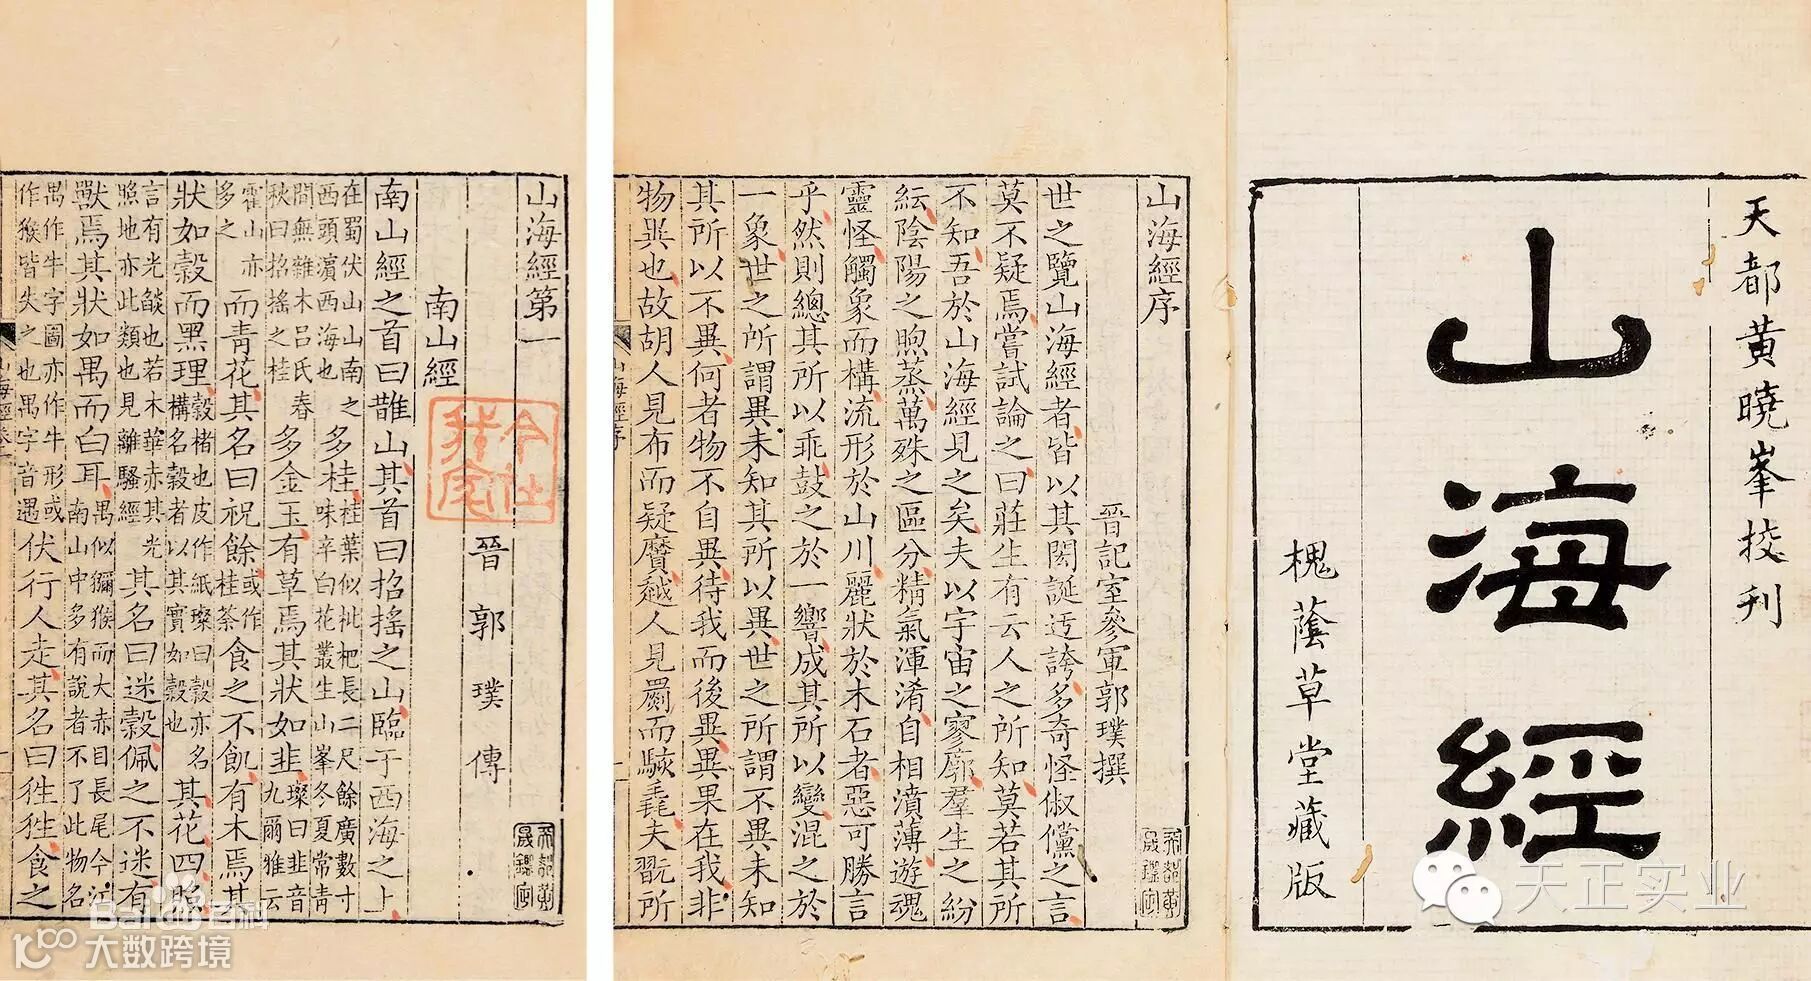 天都黃曉峯挍刊
山海經
槐蔭草堂藏版
山海經序
晉記室參軍郭璞撰
世之覽山海經者皆以其閎誕迃誇多奇怪俶儻之言
莫不疑焉嘗試論之曰莊生有云人之所知莫若其所
不知吾於山海經見之矣夫以宇宙之寥廓羣生之紛
紜陰陽之煦蒸萬殊之區分精氣渾淆自相濆薄遊魂
靈怪觸象而構流形於山川麗狀於木石者惡可勝言
乎然則總其所以乖鼓之於一響成其所以變混之於
一象世之所謂異未知其所以異世之所謂不異未知
其所以不異何者物不自異待我而後異異果在我非
物異也故胡人見布而疑黂越人見罽而駭毳夫翫所
山海經序
山海經第一
晉郭璞傳
南山經
南山經之首曰䧿山其首曰招搖之山臨于西海之上
在蜀伏山山南之西頭濱西海也多桂桂葉似枇杷長二尺餘廣數寸味辛白花叢生山峯冬夏常青
間無雜木呂氏春秋曰招搖之桂多金玉有草焉其狀如韭璨曰韭音九爾雅云
霍山亦多之而青花其名曰祝餘或作桂荼食之不飢有木焉其
狀如穀而黑理穀楮也皮作紙璨曰穀亦名構名穀者以其實如穀也其花四照
言有光燄也若木華赤其光照地亦此類也見離騷經其名曰迷穀佩之不迷有
獸焉其狀如禺而白耳禺似獼猴而大赤目長尾今江南山中多有說者不了此物名
禺作牛字圖亦作牛形或作猴皆失之也禺字音遇伏行人走其名曰狌狌食之
天正实业
Bai百科
大数跨境